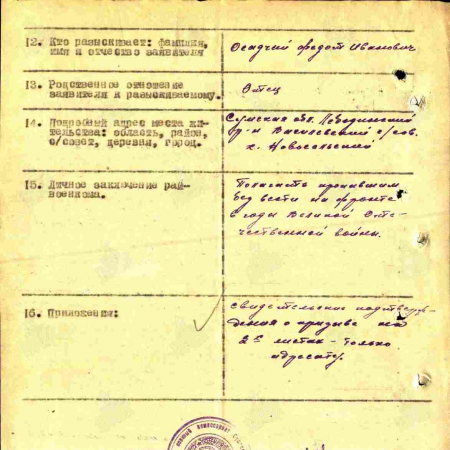 12. Кто разыскивает: фамилия,
имя и отчество заявителя
Осадчий Федот Иванович
13. Родственное отношение
заявителя к разыскиваемому.
Отец
14. Подробный адрес места жи-
тельства: область, район,
с/совет, деревня, город.
Сумская обл. Лебединский
р-н Василевский с/сов.
х. Новосельский
15. Личное заключение рай-
военкома.
Полагать пропавшим
без вести на фронте
в годы Великой Оте-
чественной войны.
16. Приложения:
Свидетельские подтвер-
дения о призыве на
2х листах - только
адресату.